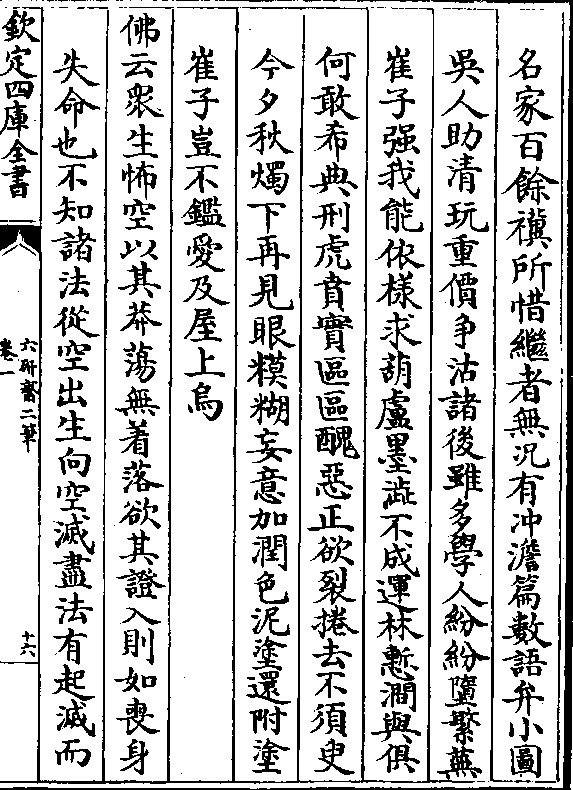 名家百餘禩所惜繼者無況有冲澹篇數語弁小圖
吳人助清玩重價争沽諸後雖多學人紛紛墮繁蕪
崔子强我能依樣求葫盧墨澁不成運林慙澗與俱
何敢希典刑虎賁實區區醜惡正欲裂捲去不須臾
今夕秋燭下再見眼糢糊妄意加潤色泥塗還附塗
崔子豈不鑑愛及屋上烏
佛云衆生怖空以其莽蕩無着落欲其證入則如喪身
失命也不知諸法從空出生向空滅盡法有起滅而
欽定四庫全書
六研齋二筆
卷一
十六